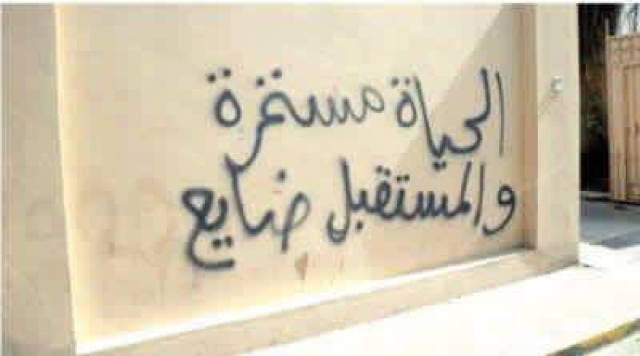 الحياة مستمرة
والمستقبل ضايع